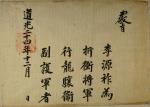 敎旨
李源祚爲
折衝將軍
行龍驤衛
副護軍者
道光二十四年十二月 日